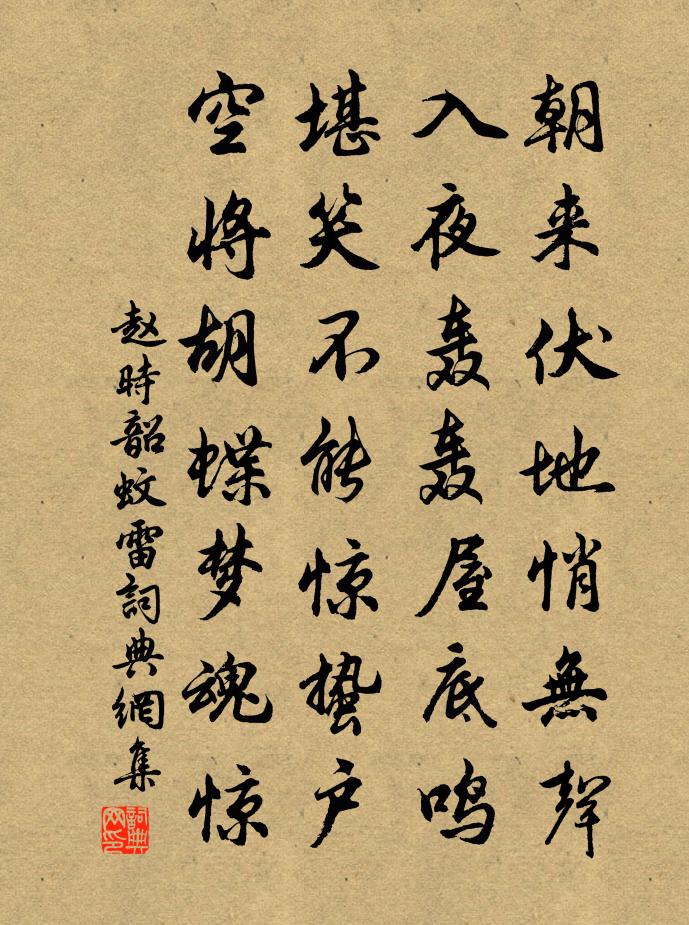 朝来伏地悄無聲
入夜轰轰屋底鸣
堪笑不能惊蛰户
空将胡蝶梦魂惊
赵時韶蚊雷詞典網集
詞典
网印